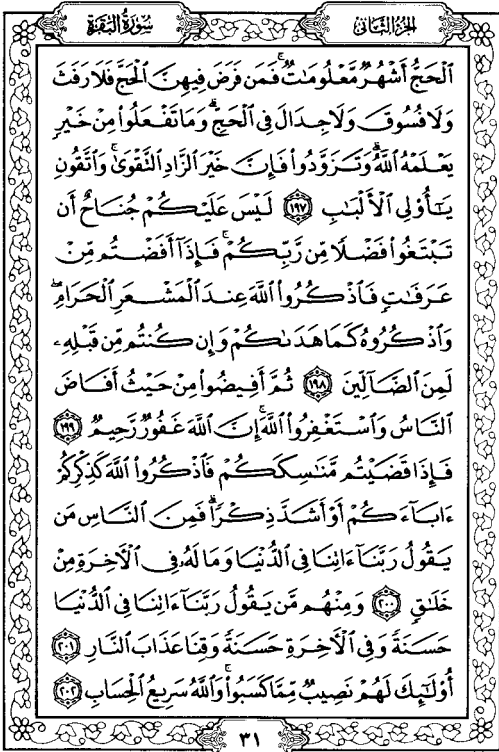 سُورَةُ البَقَرَةِ
الجُزءُ الثَّانِي
ٱلۡحَجُّ أَشۡهُرٞ مَّعۡلُومَٰتٞۚ فَمَن فَرَضَ فِيهِنَّ ٱلۡحَجَّ فَلَا رَفَثَ
وَلَا فُسُوقَ وَلَا جِدَالَ فِي ٱلۡحَجِّۗ وَمَا تَفۡعَلُواْ مِنۡ خَيۡرٖ
يَعۡلَمۡهُ ٱللَّهُۗ وَتَزَوَّدُواْ فَإِنَّ خَيۡرَ ٱلزَّادِ ٱلتَّقۡوَىٰۚ وَٱتَّقُونِ
يَٰٓأُوْلِي ٱلۡأَلۡبَٰبِ ١٩٧ لَيۡسَ عَلَيۡكُمۡ جُنَاحٌ أَن
تَبۡتَغُواْ فَضۡلٗا مِّن رَّبِّكُمۡۚ فَإِذَآ أَفَضۡتُم مِّنۡ
عَرَفَٰتٖ فَٱذۡكُرُواْ ٱللَّهَ عِندَ ٱلۡمَشۡعَرِ ٱلۡحَرَامِۖ
وَٱذۡكُرُوهُ كَمَا هَدَىٰكُمۡ وَإِن كُنتُم مِّن قَبۡلِهِۦ
لَمِنَ ٱلضَّآلِّينَ ١٩٨ ثُمَّ أَفِيضُواْ مِنۡ حَيۡثُ أَفَاضَ
ٱلنَّاسُ وَٱسۡتَغۡفِرُواْ ٱللَّهَۚ إِنَّ ٱللَّهَ غَفُورٞ رَّحِيمٞ ١٩٩
فَإِذَا قَضَيۡتُم مَّنَٰسِكَكُمۡ فَٱذۡكُرُواْ ٱللَّهَ كَذِكۡرِكُمۡ
ءَابَآءَكُمۡ أَوۡ أَشَدَّ ذِكۡرٗاۗ فَمِنَ ٱلنَّاسِ مَن
يَقُولُ رَبَّنَآ ءَاتِنَا فِي ٱلدُّنۡيَا وَمَا لَهُۥ فِي ٱلۡأٓخِرَةِ مِنۡ
خَلَٰقٖ ٢٠٠ وَمِنۡهُم مَّن يَقُولُ رَبَّنَآ ءَاتِنَا فِي ٱلدُّنۡيَا
حَسَنَةٗ وَفِي ٱلۡأٓخِرَةِ حَسَنَةٗ وَقِنَا عَذَابَ ٱلنَّارِ ٢٠١
أُوْلَٰٓئِكَ لَهُمۡ نَصِيبٞ مِّمَّا كَسَبُواْۚ وَٱللَّهُ سَرِيعُ ٱلۡحِسَابِ ٢٠٢
٣١